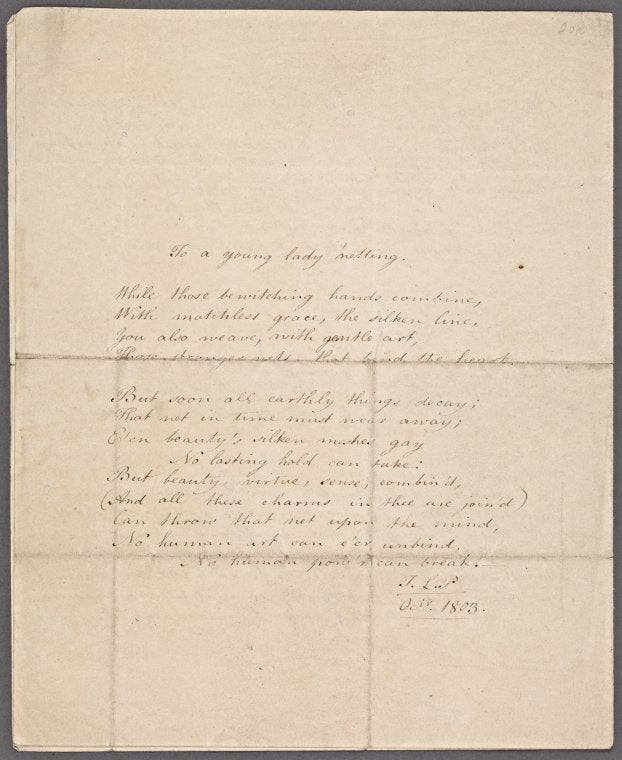 To a young lady netting.
While those bewitching hands combine,
With matchless grace, the silken line,
You also weave, with gentle art,
Those stronger nets that bind the heart.
But soon all earthly things decay;
That net in time must wear away;
E'en beauty's silken meshes gay
No lasting hold can take:
But beauty, virtue, sense, combin'd,
(And all these charms in thee are join'd)
Can throw that net upon the mind,
No human art can e'er unbind,
No human pow'r can break.
T. L. P
Octr. 1803.